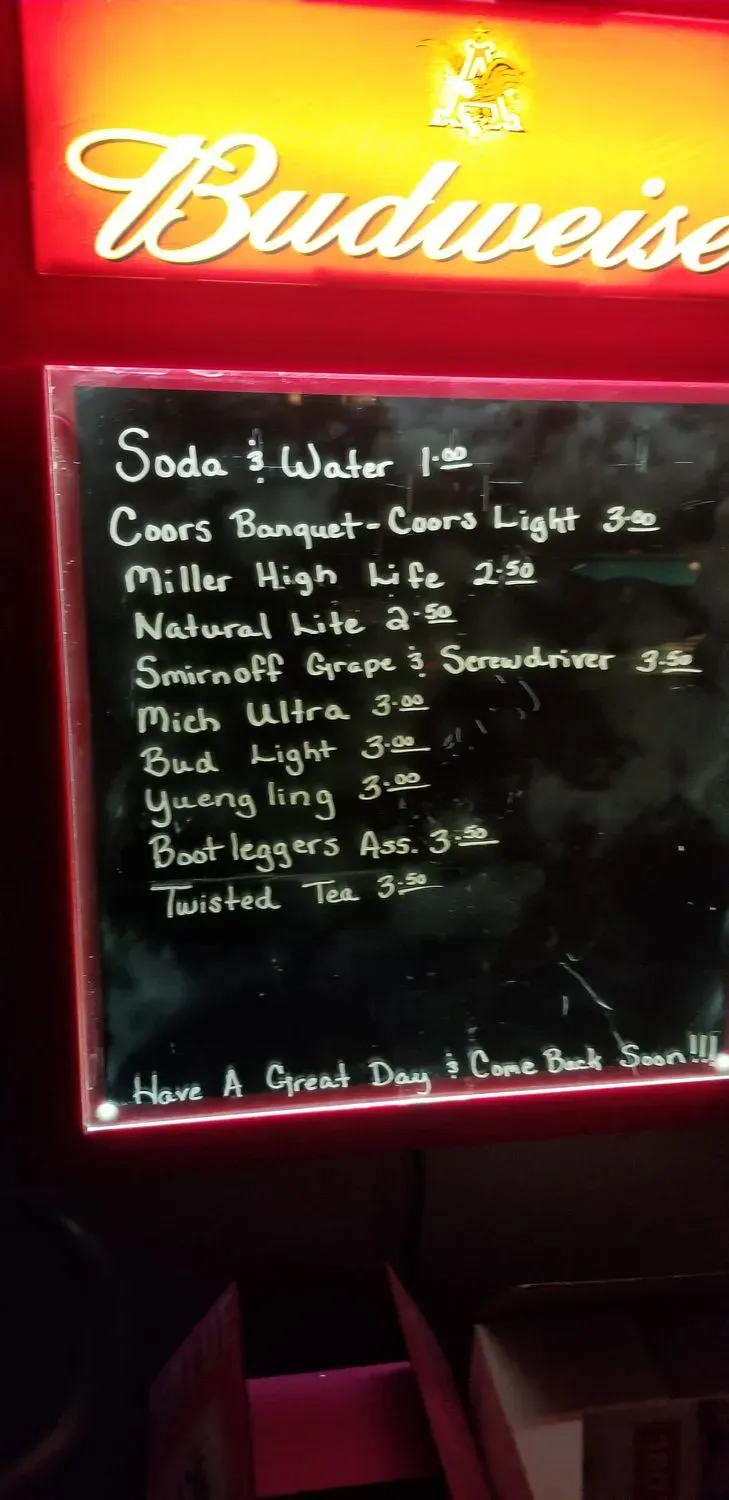 Budweise
Soda & Water 1.00
Coors Banquet-Coors Light 3.00
Miller High Life 2.50
Natural Lite 2.50
Smirnoff Grape & Screwdriver 3.50
Mich Ultra 3.00
Bud Light 3.00
Yuengling 3.00
Bootleggers Ass. 3.50
Twisted Tea 3.50
Have A Great Day & Come Back Soon!!!